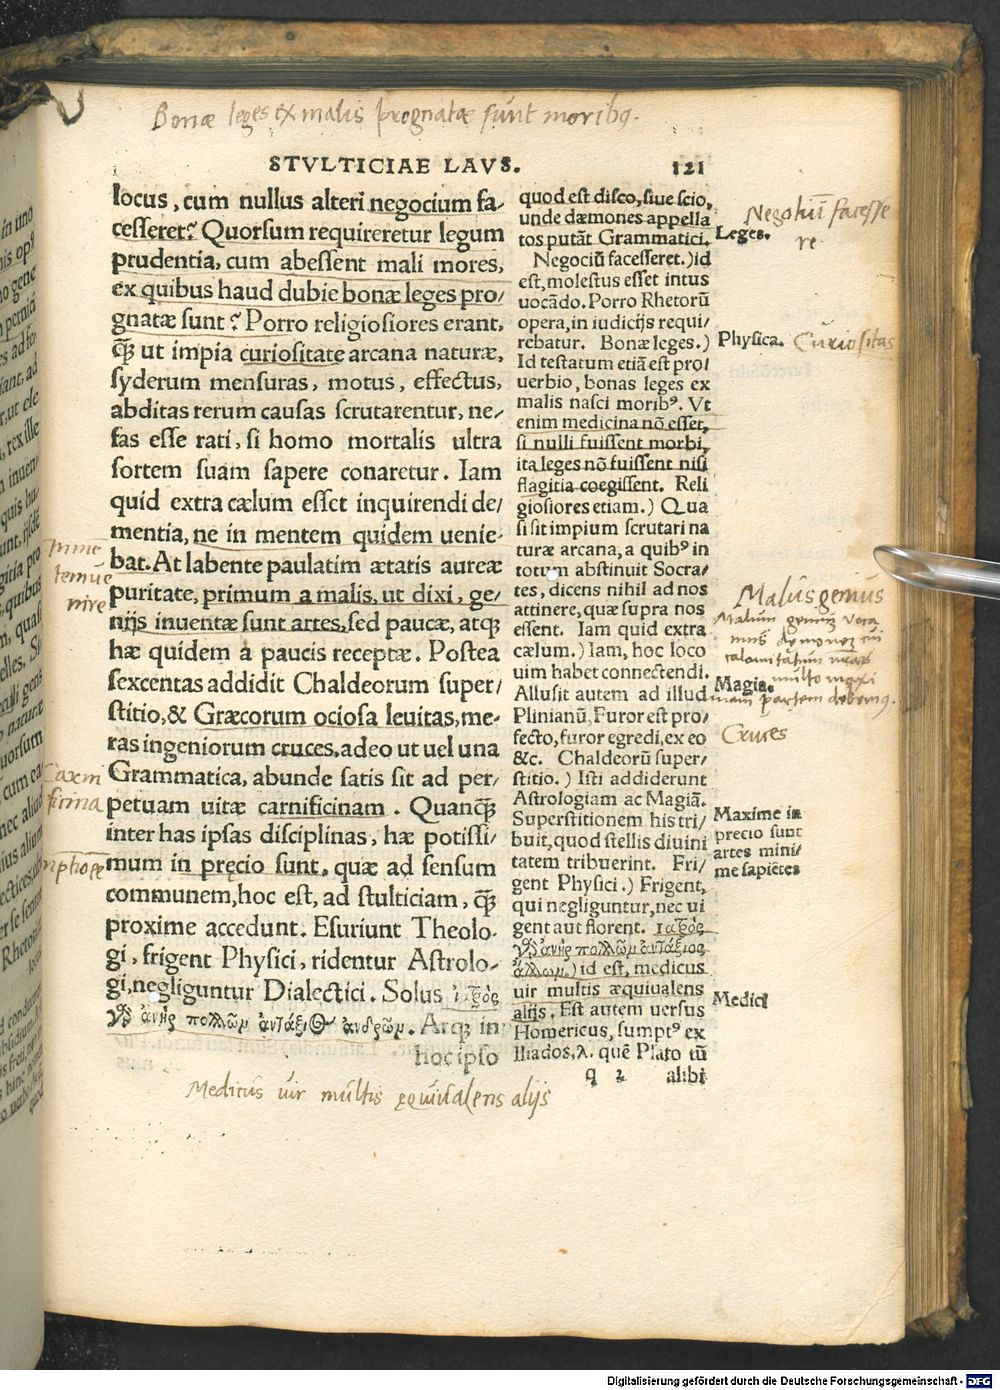 Bonæ leges ex malis prognatæ sunt moribꝰ.
STVLTICIAE LAVS. 121
locus, cum nullus alteri negocium fa-
cesseret? Quorsum requireretur legum
prudentia, cum abessent mali mores,
ex quibus haud dubie bonæ leges pro/
gnatæ sunt? Porro religiosiores erant,
ꝙ̃ ut impia curiositate arcana naturæ,
syderum mensuras, motus, effectus,
abditas rerum causas scrutarentur, ne/
fas esse rati, si homo mortalis ultra
sortem suam sapere conaretur. Iam
quid extra cælum esset inquirendi de/
mentia, ne in mentem quidem uenie-
bat. At labente paulatim ætatis aureæ
puritate, primum a malis, ut dixi, ge/
nijs inuentæ sunt artes, sed paucæ, atqꝫ
hæ quidem à paucis receptæ. Postea
sexcentas addidit Chaldeorum super/
stitio, & Græcorum ociosa leuitas, me-
ras ingeniorum cruces, adeo ut uel una
Grammatica, abunde satis sit ad per/
petuam uitæ carnificinam. Quanꝙ̃
inter has ipsas disciplinas, hæ potissi/
mum in precio sunt, quæ ad sensum
communem, hoc est, ad stulticiam, ꝙ̃
proxime accedunt. Esuriunt Theolo-
gi, frigent Physici, ridentur Astrolo-
gi, negliguntur Dialectici. Solus ἰατρὸς
γὰρ ἀνὴρ πολλῶν ἀντάξιος ἀνδρῶν. Atqꝫ in
hoc ipso
quod est disco, siue scio,
unde dæmones appella
tos putãt Grammatici.
Negociũ facesseret.) id
est, molestus esset intus
uocãdo. Porro Rhetorũ
opera, in iudicijs requi/
rebatur. Bonæ leges.)
Id testatum etiã est pro/
uerbio, bonas leges ex
malis nasci moribꝰ. Vt
enim medicina nõ esset,
si nulli fuissent morbi,
ita leges nõ fuissent nisi
flagitia coegissent. Reli
giosiores etiam.) Qua
si sit impium scrutari na
turæ arcana, a quibꝰ in
totum abstinuit Socra/
tes, dicens nihil ad nos
attinere, quæ supra nos
essent. Iam quid extra
cælum.) Iam, hoc loco
uim habet connectendi.
Allusit autem ad illud
Plinianũ, Furor est pro/
fecto, furor egredi, ex eo
&c. Chaldeorũ super/
stitio.) Isti addiderunt
Astrologiam ac Magiã.
Superstitionem his tri/
buit, quod stellis diuini
tatem tribuerint. Fri/
gent Physici.) Frigent,
qui negliguntur, nec ui
gent aut florent. ἰατρὸς
γὰρ ἀνὴρ πολλῶν ἀντάξιος
ἄλλων.) id est, medicus
uir multis æquiualens
alijs. Est autem uersus
Homericus, sumptꝰ ex
Iliados, λ. quẽ Plato tũ
q 2 alibi
Leges.
Physica.
Magia.
Maxime in
precio sunt
artes mini/
me sapiẽtes
Medici
Negotiũ facesse
re
Curiositas
Malus genius
Cruces
Medicus uir multis equiualens alijs
Digitalisierung gefördert durch die Deutsche Forschungsgemeinschaft - DFG